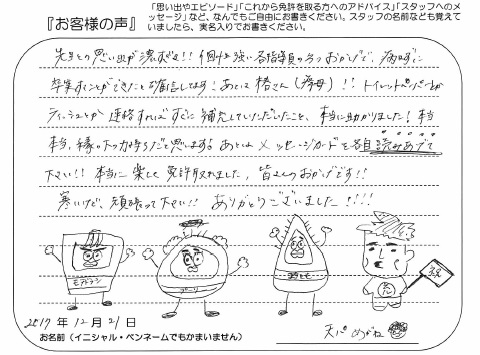 『お客様の声』
「思い出やエピソード」「これから免許を取る方へのアドバイス」「スタッフへのメ
ッセージ」など、なんでもご自由にお書きください。スタッフの名前なども覚えて
いましたら、実名入りでお書きください。
先生との思い出が濃すぎる!!
おかげで、病まずに
卒業することができたと確信してます!あとは椿さん(寮母)!!トイレットペーパーとか
ティッシュとか連絡すればすぐに補充していただいたこと、本当に助かりました!本当
本当、縁の下の力持ちだと思います。あとは、メッセージカードを各自読みあげて
下さい!!本当に楽しく免許取れました。皆さんのおかげです!!
寒いけど、頑張って下さい!!ありがとうございました!!!!
2017年12月21日
お名前(イニシャル・ペンネームでもかまいません)
天パめがね